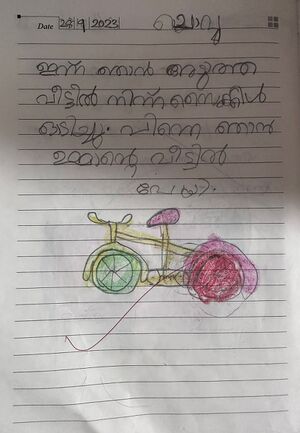 Date 26/9/2023
ചൊവ്വ
ഇന്ന് ഞാൻ അടുത്ത
വീട്ടിൽ നിന്ന് സൈക്കിൾ
ഓടിച്ചു. പിന്നെ ഞാൻ
ഉമ്മാന്റെ വീട്ടിൽ
പോയി.